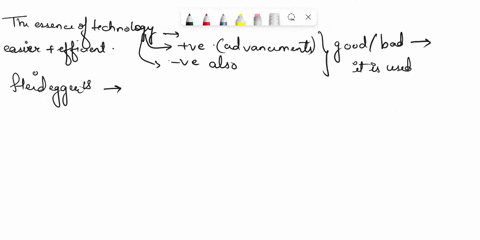 The essence of technology →
easier + efficient. → +ve (advancements) } good/bad →
→ -ve also it is used
Heidegger's →